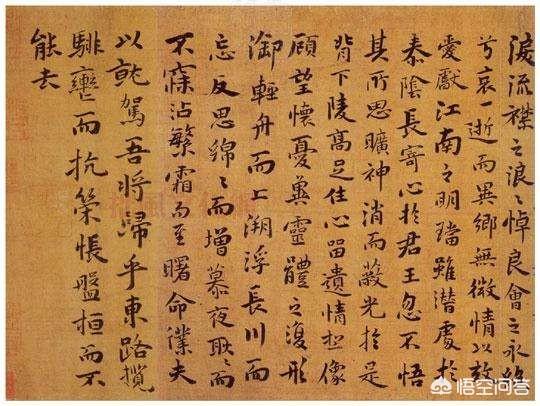 淚流襟之浪〻悼良會之永絕
兮哀一逝而異鄉無微情以效
愛獻江南之明璫雖潛處於
泰陰長寄心於君王忽不悟
其所思曠神消而蔽光於是
背下陵高足往心留遺情想像
顧望懷憂冀靈體之復形
御輕舟而上溯浮長川而
忘反思綿〻而增慕夜耿〻而
不寐沾繁霜而至曙命僕夫
以就駕吾將歸乎東路攬
騑轡而抗策悵盤桓而不
能去
悟空问答